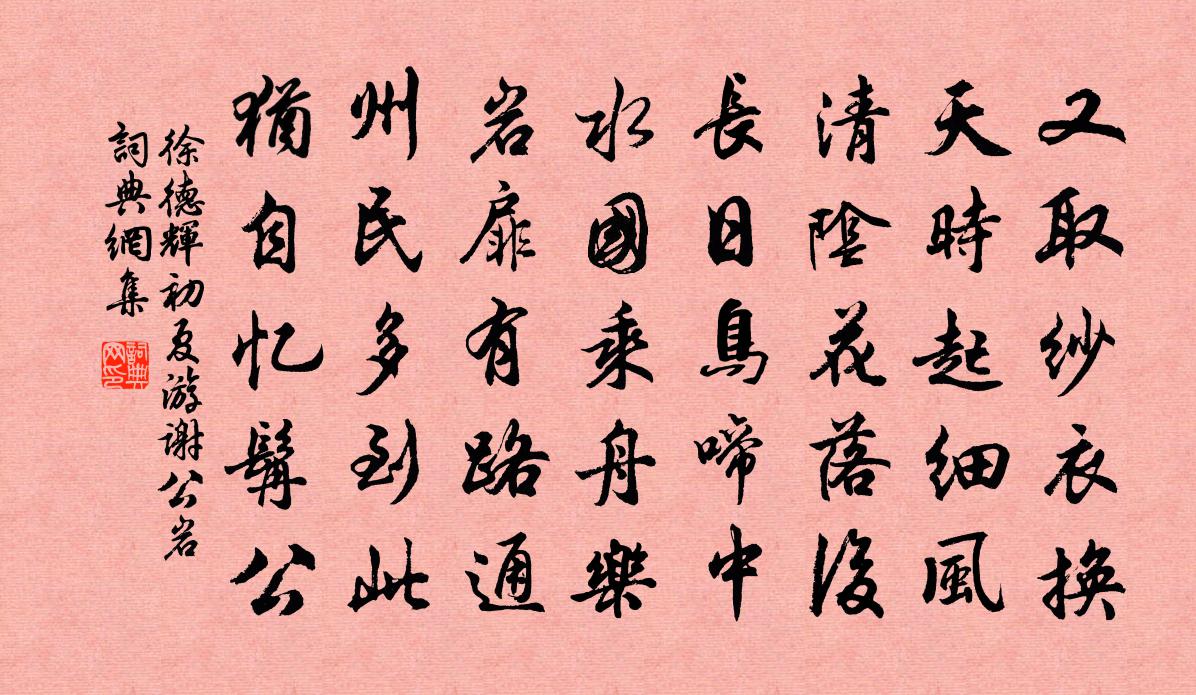 又取紗衣換
天時起細風
清陰花落後
長日鳥啼中
水國乘舟樂
岩扉有路通
州民多到此
猶自忆髯公
徐德輝初夏游谢公岩
詞典網集
詞典
网印